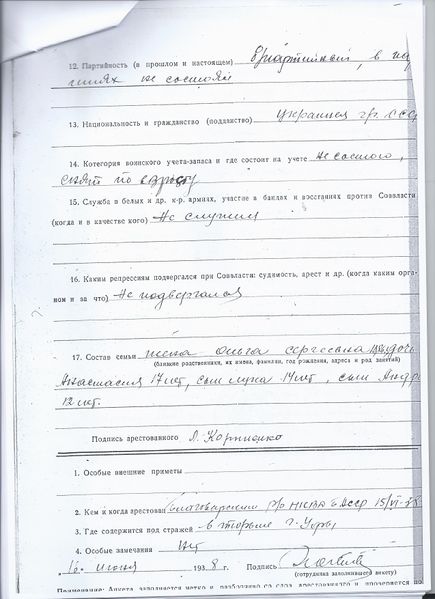 12. Партийность (в прошлом и настоящем) Б/партийный, в пар
тиях не состоял
13. Национальность и гражданство (подданство) украинец гр. СССР
14. Котегория воинского учета-запаса и где состоит на учете Не состою,
снят по возрасту
15. Служба в белых и др. к-р. армиях, участие в бандах и восстаниях против Соввласти
(когда и в качестве кого) Не служил
16. Каким репрессиям подвергался при Соввласти: судимость, арест и др. (когда каким орга-
ном и за что) Не подвергался
17. Состав семьи жена Ольга Сергеевна дочь
(близкие родственники, их имена, фамилии, год рождения, адреса и род занятий)
Анастасия 17 лет, сын Лука 14 лет, сын Андр
12 лет.
Подпись арестованного Л. Корниенко
1. Особые внешние приметы
2. Кем и когда арестован Благоварским Р/о НКВД БАССР 15/VI-38
3. Где содержится под стражей в тюрьме г. Уфы
4. Особые замечания Нет
16. июня 1938 г. Подпись
(сотрудника заполнившего анкету)
Примечание: Анкета заполняется четко и разборчиво со слов арестованного и проверяется по